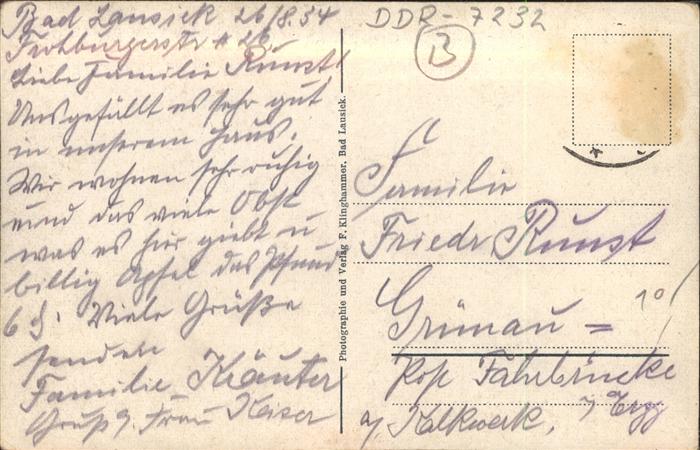 Bad Lausick 26/8.34
Frohburgerstr # 26
Liebe Familie Kunst!
Uns gefällt es sehr gut
in unserem Haus.
Wir wohnen sehr ruhig
und das viele Obst
was es hier giebt u
billig Äpfel das Pfund
6 ₰. Viele Grüße
senden
Familie Kräuter
Gruß Frau Kaiser
Photographie und Verlag F. Klinghammer, Bad Lausick.
DDR - 7232
B
Familie
Friedr Kunst
10/
Grünau =
Post Fahrbrücke
a/ Kalkwerk, i/ Erzg